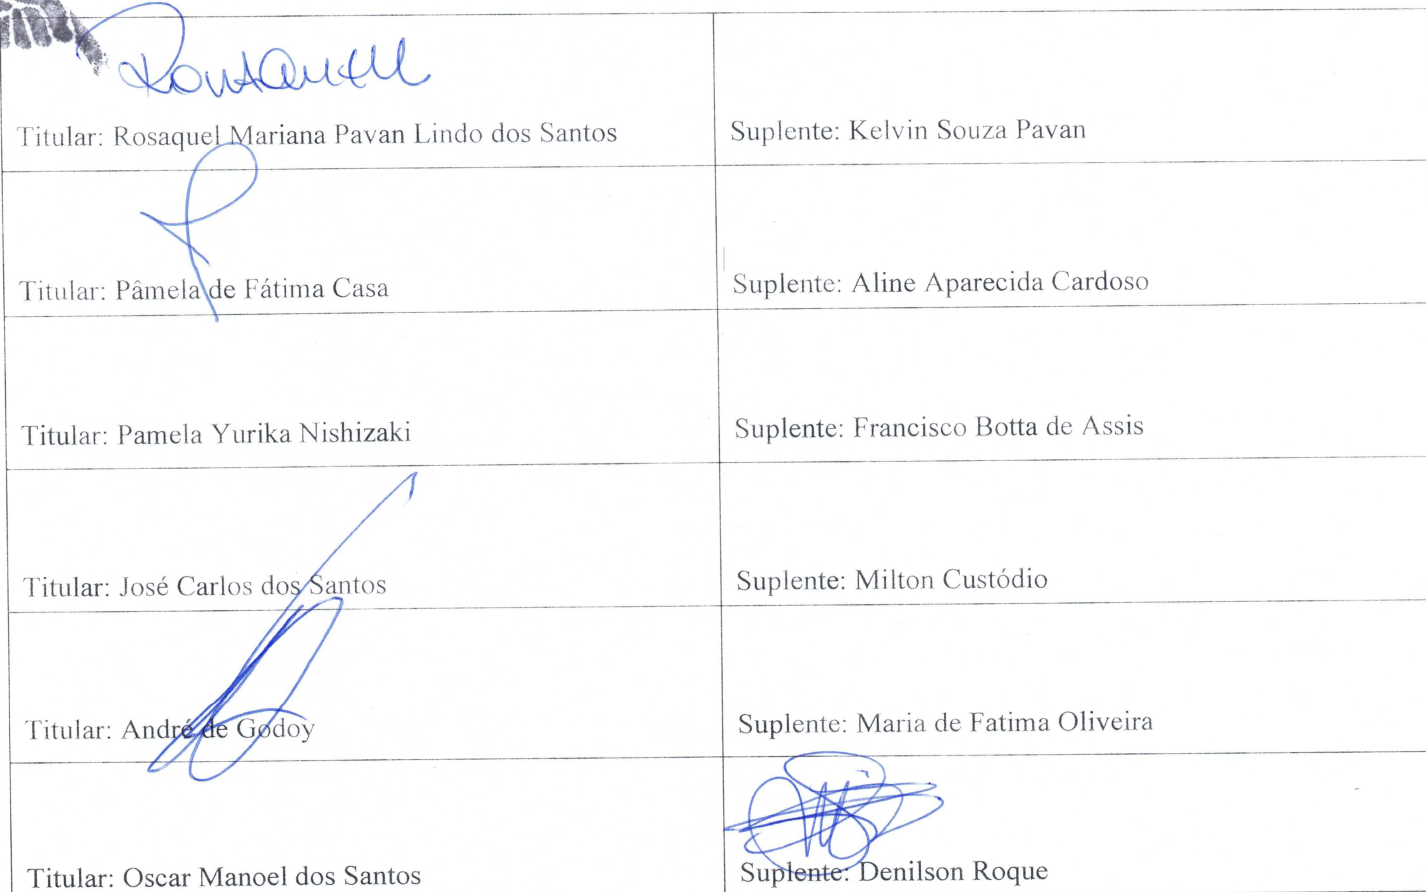 Titular: Rosaquel Mariana Pavan Lindo dos Santos
Suplente: Kelvin Souza Pavan
Titular: Pâmela de Fátima Casa
Suplente: Aline Aparecida Cardoso
Titular: Pamela Yurika Nishizaki
Suplente: Francisco Botta de Assis
Titular: José Carlos dos Santos
Suplente: Milton Custódio
Titular: André de Godoy
Suplente: Maria de Fatima Oliveira
Titular: Oscar Manoel dos Santos
Suplente: Denilson Roque